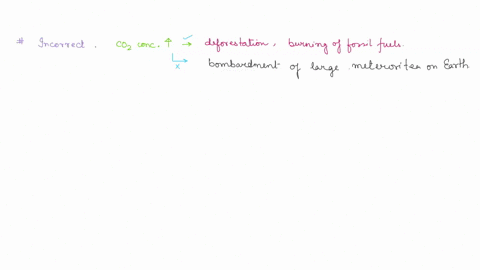 # Incorrect. CO₂ conc. ↑ → deforestation, burning of fossil fuels.
x bombardment of large meterorites on Earth.